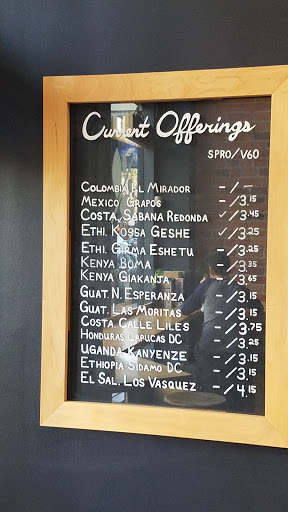 Current Offerings
SPRO/V60
COLOMBIA EL MIRADOR -/-
MEXICO GRAPOS -/3.15
COSTA. SABANA REDONDA ✓/3.45
ETHI. KOSSA GESHE ✓/3.25
ETHI. GIRMA ESHETU -/3.25
KENYA BOMA -/3.35
KENYA GIAKANJA -/3.65
GUAT. N. ESPERANZA -/3.15
GUAT. LAS MORITAS -/3.15
COSTA CALLE LILES -/3.75
HONDURAS CAPUCAS DC -/3.25
UGANDA KANYENZE -/3.15
ETHIOPIA SIDAMO DC -/3.15
EL SAL. LOS VASQUEZ -/4.15